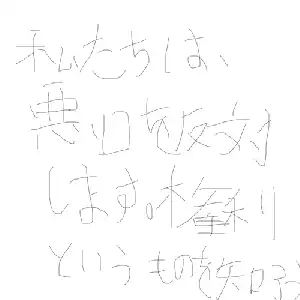 私たちは、
悪口を反対
します。権利
というものを知ろう